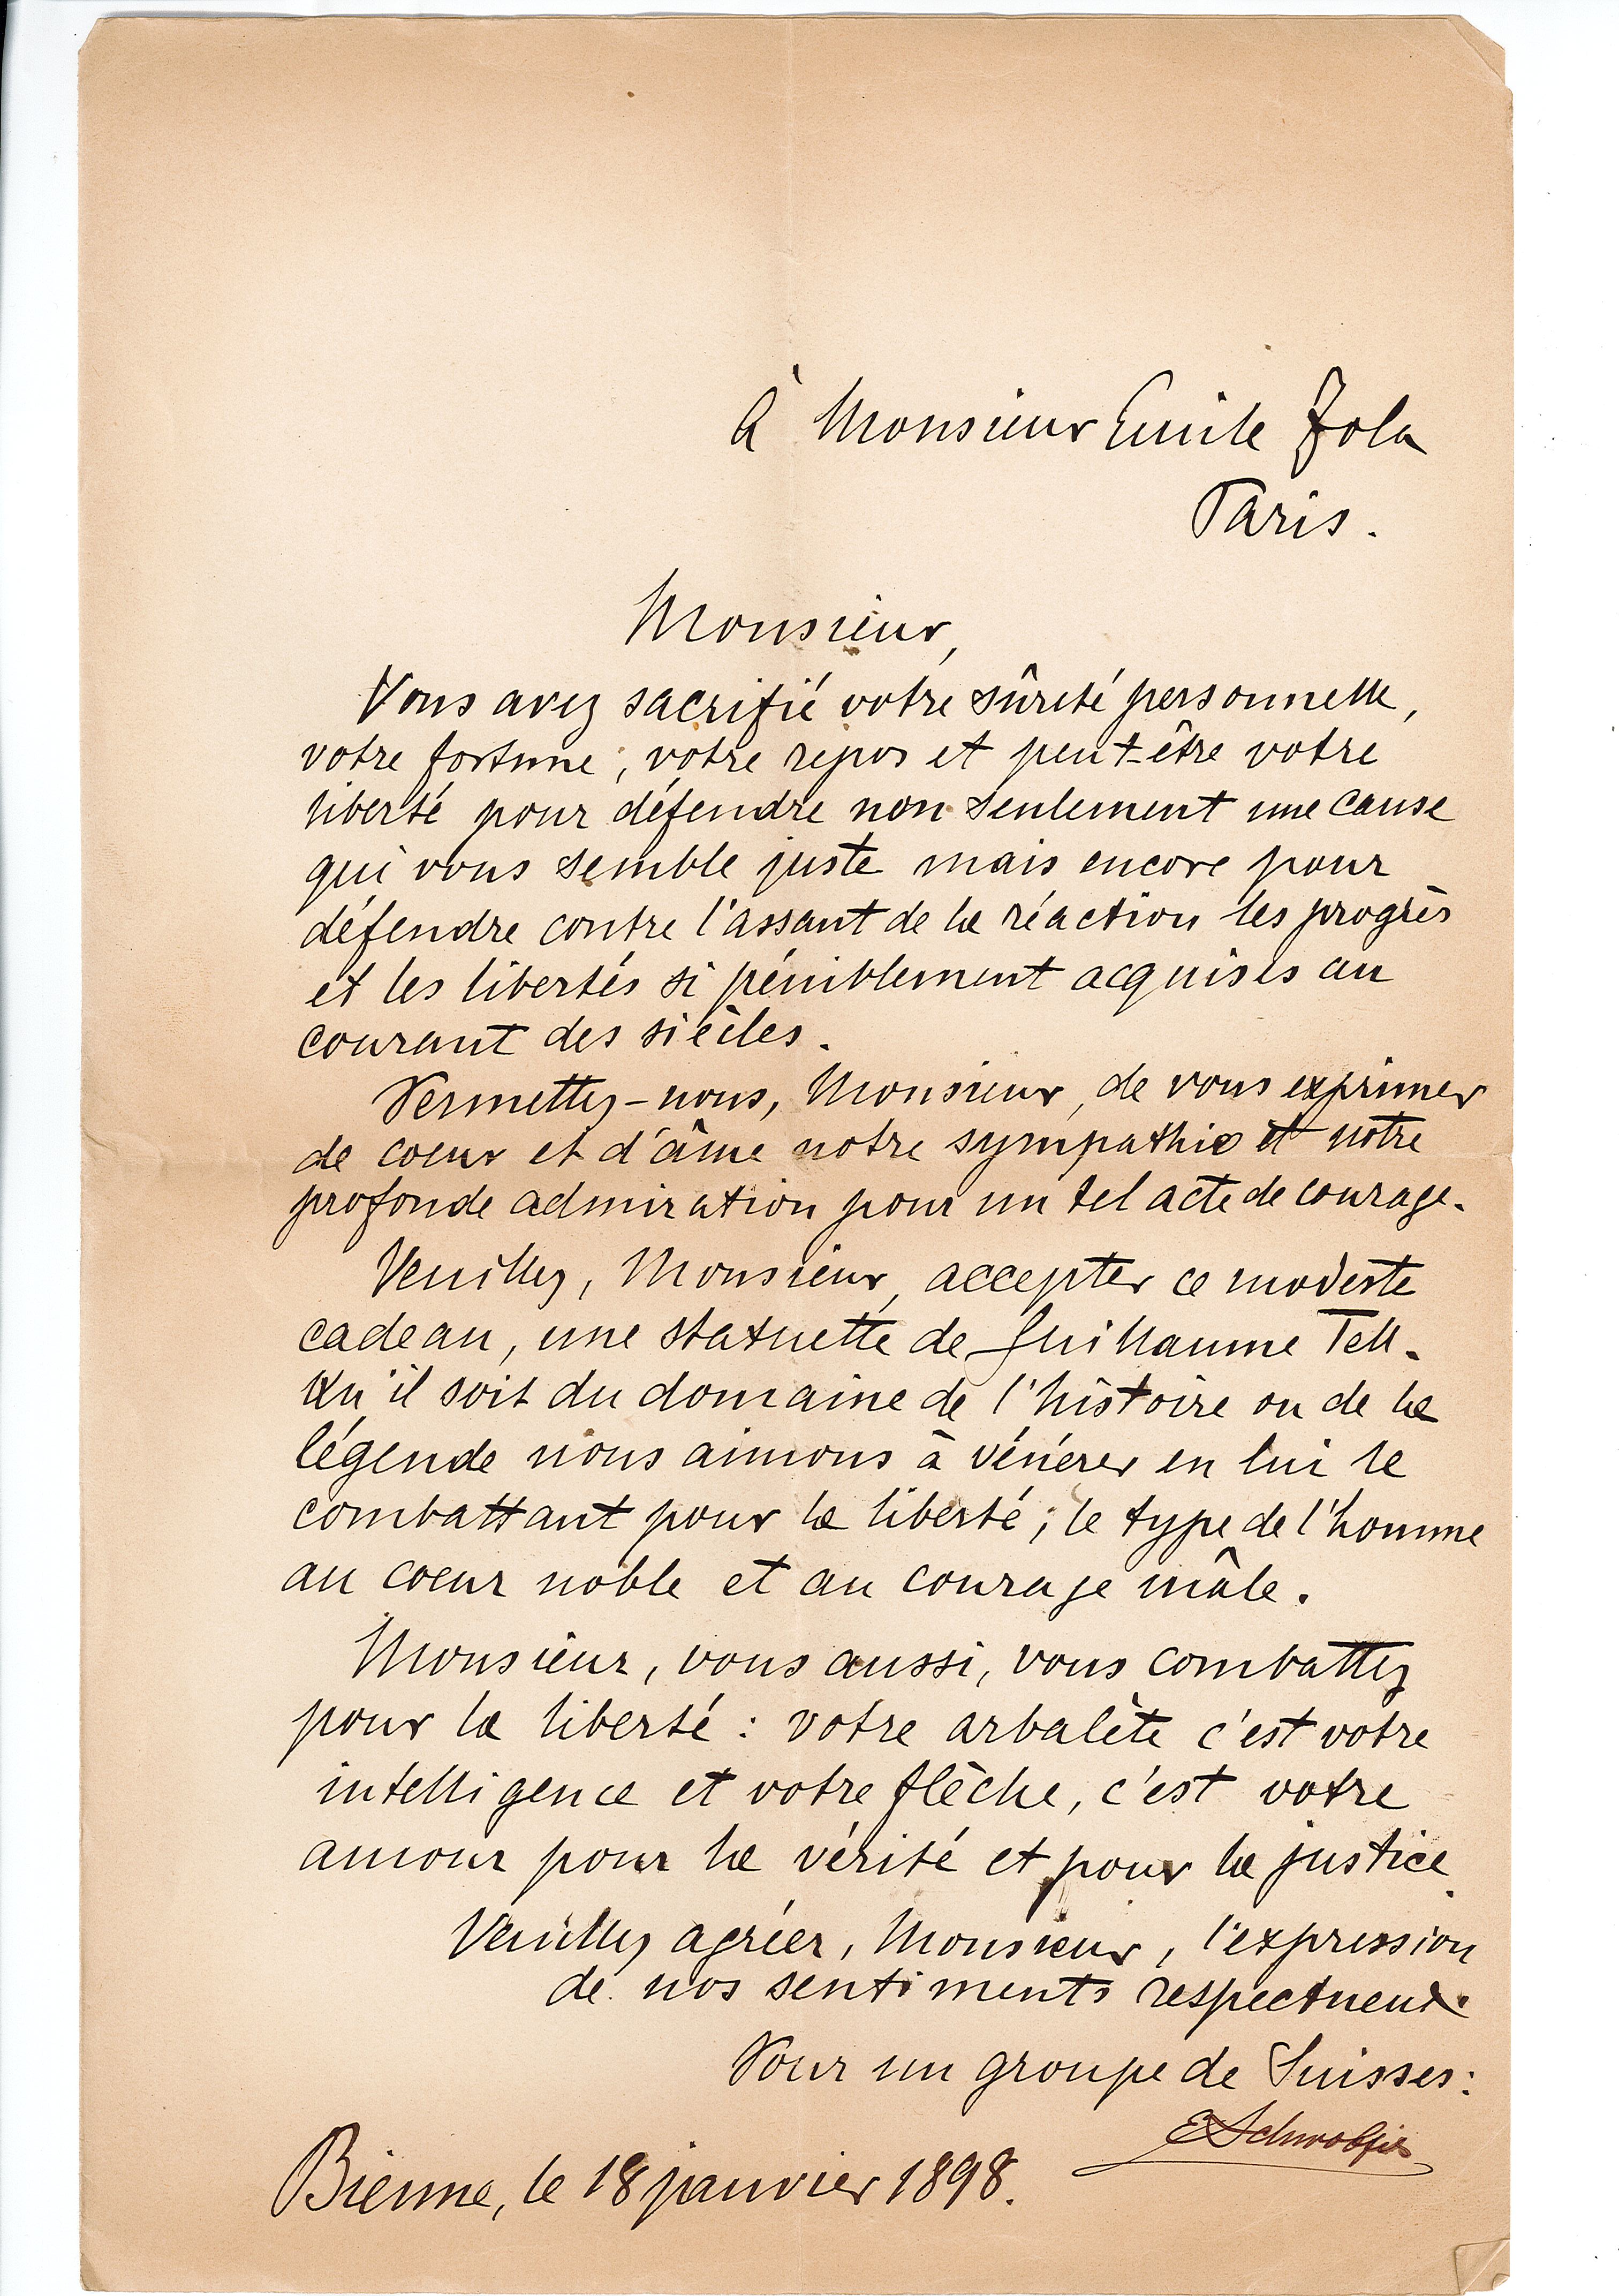 À Monsieur Emile Zola
Paris.
Monsieur,
Vous avez sacrifié votre sûreté personnelle,
votre fortune, votre repos et peut-être votre
liberté pour défendre non seulement une cause
qui vous semble juste mais encore pour
défendre contre l'assaut de la réaction les progrès
et les libertés si péniblement acquises au
courant des siècles.
Permettez-nous, Monsieur, de vous exprimer
de coeur et d'âme notre sympathie et notre
profonde admiration pour un tel acte de courage.
Veuillez, Monsieur, accepter ce modeste
cadeau, une statuette de Guillaume Tell.
Qu'il soit du domaine de l'histoire ou de la
légende nous aimons à vénérer en lui le
combattant pour la liberté; le type de l'homme
au coeur noble et au courage mâle.
Monsieur, vous aussi, vous combattez
pour la liberté : votre arbalète c'est votre
intelligence et votre flèche, c'est votre
amour pour la vérité et pour la justice.
Veuillez agréer, Monsieur, l'expression
de nos sentiments respectueux.
Pour un groupe de Suisses:
E Schwob fils
Bienne, le 18 janvier 1898.